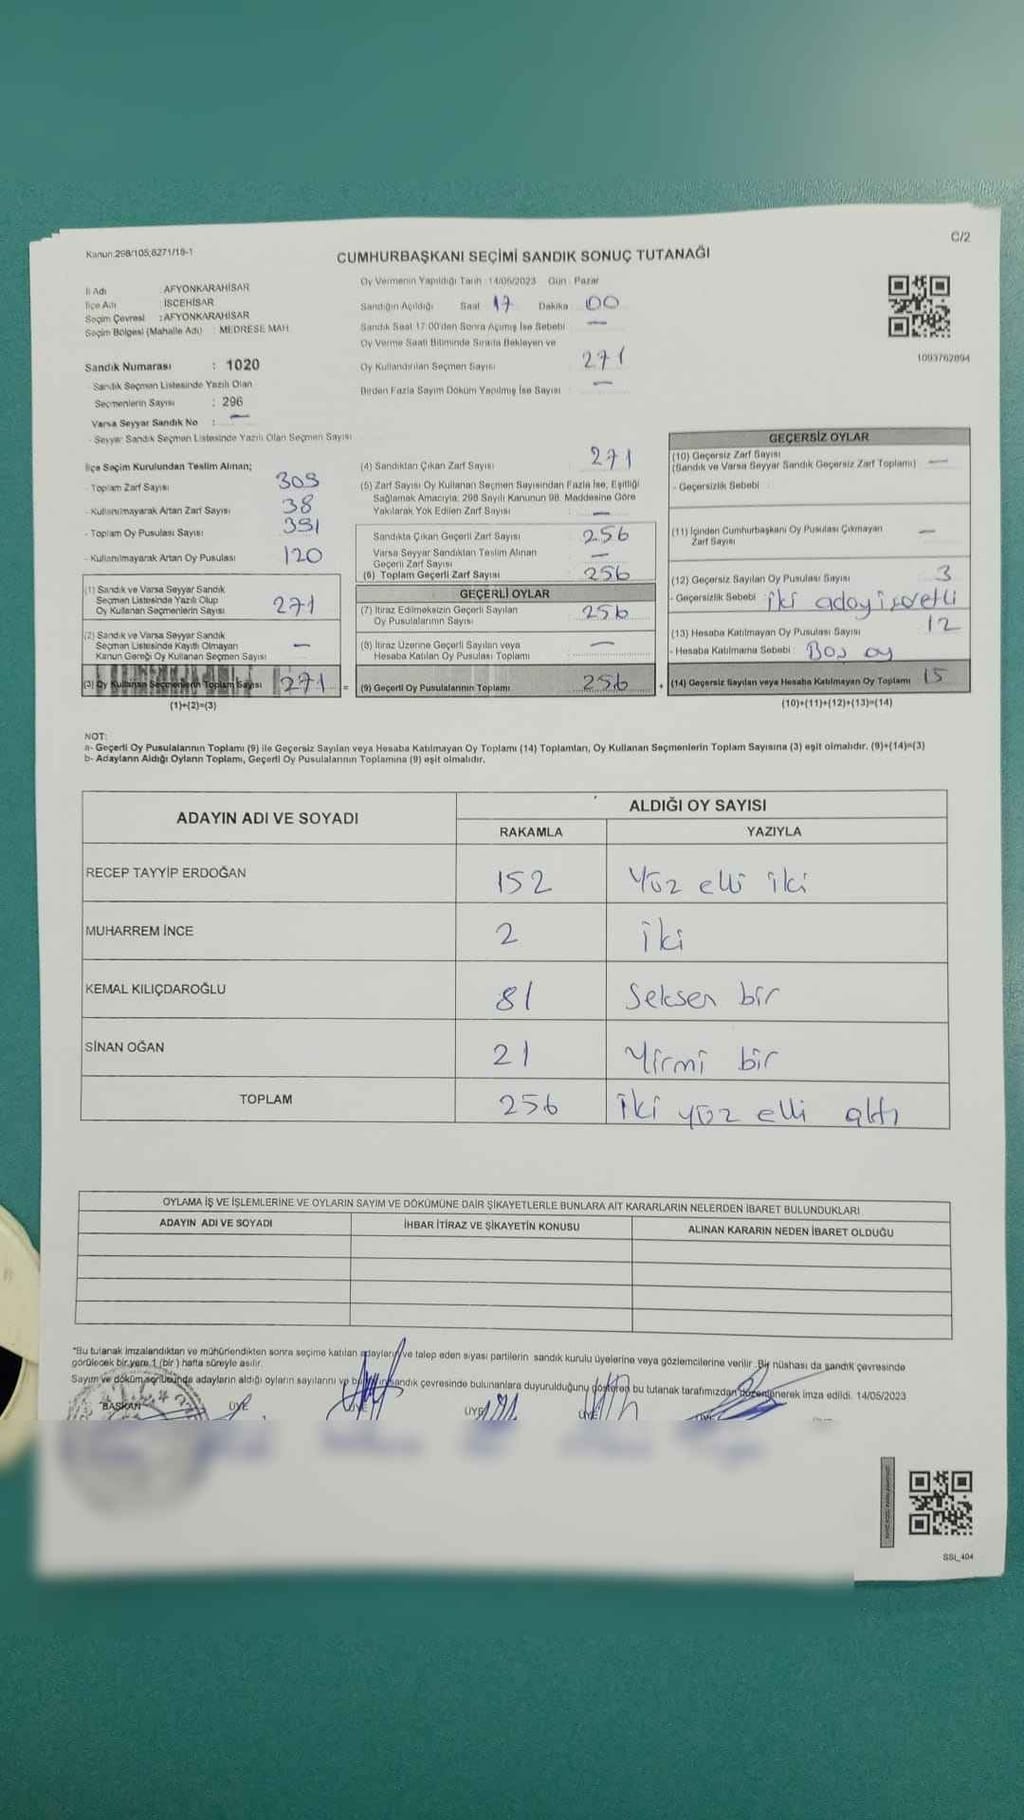 Kanun:298/105,6271/19-1
C/2
CUMHURBAŞKANI SEÇİMİ SANDIK SONUÇ TUTANAĞI
İl Adı : AFYONKARAHİSAR
İlçe Adı : İSCEHİSAR
Seçim Çevresi : AFYONKARAHİSAR
Seçim Bölgesi (Mahalle Adı) : MEDRESE MAH.
Oy Vermenin Yapıldığı Tarih : 14/05/2023 Gün : Pazar
Sandığın Açıldığı Saat 17 Dakika : 00
Sandık Saat 17:00'den Sonra Açımış İse Sebebi —
Oy Verme Saati Bitiminde Sırada Bekleyen ve
Oy Kullandırılan Seçmen Sayısı 271
Birden Fazla Sayım Döküm Yapılmış İse Sayısı —
1093762894
Sandık Numarası : 1020
Sandık Seçmen Listesinde Yazılı Olan
Seçmenlerin Sayısı : 296
Varsa Seyyar Sandık No : —
- Seyyar Sandık Seçmen Listesinde Yazılı Olan Seçmen Sayısı
İlçe Seçim Kurulundan Teslim Alınan;
- Toplam Zarf Sayısı 309
- Kullanılmayarak Artan Zarf Sayısı 38
- Toplam Oy Pusulası Sayısı 391
- Kullanılmayarak Artan Oy Pusulası 120
(1) Sandık ve Varsa Seyyar Sandık
Seçmen Listesinde Yazılı Olup
Oy Kullanan Seçmenlerin Sayısı 271
(2) Sandık ve Varsa Seyyar Sandık
Seçmen Listesinde Kayıtlı Olmayan
Kanun Gereği Oy Kullanan Seçmen Sayısı —
(3) Oy Kullanan Seçmenlerin Toplam Sayısı 271 =
(1)+(2)=(3)
(4) Sandıktan Çıkan Zarf Sayısı 271
(5) Zarf Sayısı Oy Kullanan Seçmen Sayısından Fazla İse, Eşitliği
Sağlamak Amacıyla; 298 Sayılı Kanunun 98. Maddesine Göre
Yakılarak Yok Edilen Zarf Sayısı : —
Sandıkta Çıkan Geçerli Zarf Sayısı 256
Varsa Seyyar Sandıktan Teslim Alınan
Geçerli Zarf Sayısı —
(6) Toplam Geçerli Zarf Sayısı 256
GEÇERLİ OYLAR
(7) İtiraz Edilmeksizin Geçerli Sayılan
Oy Pusulalarının Sayısı 256
(8) İtiraz Üzerine Geçerli Sayılan veya
Hesaba Katılan Oy Pusulası Toplamı —
(9) Geçerli Oy Pusulalarının Toplamı 256 +
GEÇERSİZ OYLAR
(10) Geçersiz Zarf Sayısı
(Sandık ve Varsa Seyyar Sandık Geçersiz Zarf Toplamı) —
- Geçersizlik Sebebi
(11) İçinden Cumhurbaşkanı Oy Pusulası Çıkmayan
Zarf Sayısı —
(12) Geçersiz Sayılan Oy Pusulası Sayısı 3
- Geçersizlik Sebebi iki aday işaretli
(13) Hesaba Katılmayan Oy Pusulası Sayısı 12
- Hesaba Katılmama Sebebi : Boş oy
(14) Geçersiz Sayılan veya Hesaba Katılmayan Oy Toplamı 15
(10)+(11)+(12)+(13)=(14)
NOT:
a- Geçerli Oy Pusulalarının Toplamı (9) ile Geçersiz Sayılan veya Hesaba Katılmayan Oy Toplamı (14) Toplamları, Oy Kullanan Seçmenlerin Toplam Sayısına (3) eşit olmalıdır. (9)+(14)=(3)
b- Adayların Aldığı Oyların Toplamı, Geçerli Oy Pusulalarının Toplamına (9) eşit olmalıdır.
ADAYIN ADI VE SOYADI
ALDIĞI OY SAYISI
RAKAMLA YAZIYLA
RECEP TAYYİP ERDOĞAN 152 Yüz elli iki
MUHARREM İNCE 2 iki
KEMAL KILIÇDAROĞLU 81 Seksen bir
SİNAN OĞAN 21 Yirmi bir
TOPLAM 256 iki yüz elli altı
OYLAMA İŞ VE İŞLEMLERİNE VE OYLARIN SAYIM VE DÖKÜMÜNE DAİR ŞİKAYETLERLE BUNLARA AİT KARARLARIN NELERDEN İBARET BULUNDUKLARI
ADAYIN ADI VE SOYADI İHBAR İTİRAZ VE ŞİKAYETİN KONUSU ALINAN KARARIN NEDEN İBARET OLDUĞU
*Bu tutanak imzalandıktan ve mühürlendikten sonra seçime katılan adayların ve talep eden siyasi partilerin sandık kurulu üyelerine veya gözlemcilerine verilir. Bir nüshası da sandık çevresinde
görülecek bir yere 1 (bir) hafta süreyle asılır.
Sayım ve döküm sonucunda adayların aldığı oyların sayılarını ve sandık çevresinde bulunanlara duyurulduğunu gösteren bu tutanak tarafımızdan düzenlenerek imza edildi. 14/05/2023
BAŞKAN ÜYE ÜYE ÜYE ÜYE
SSI_404